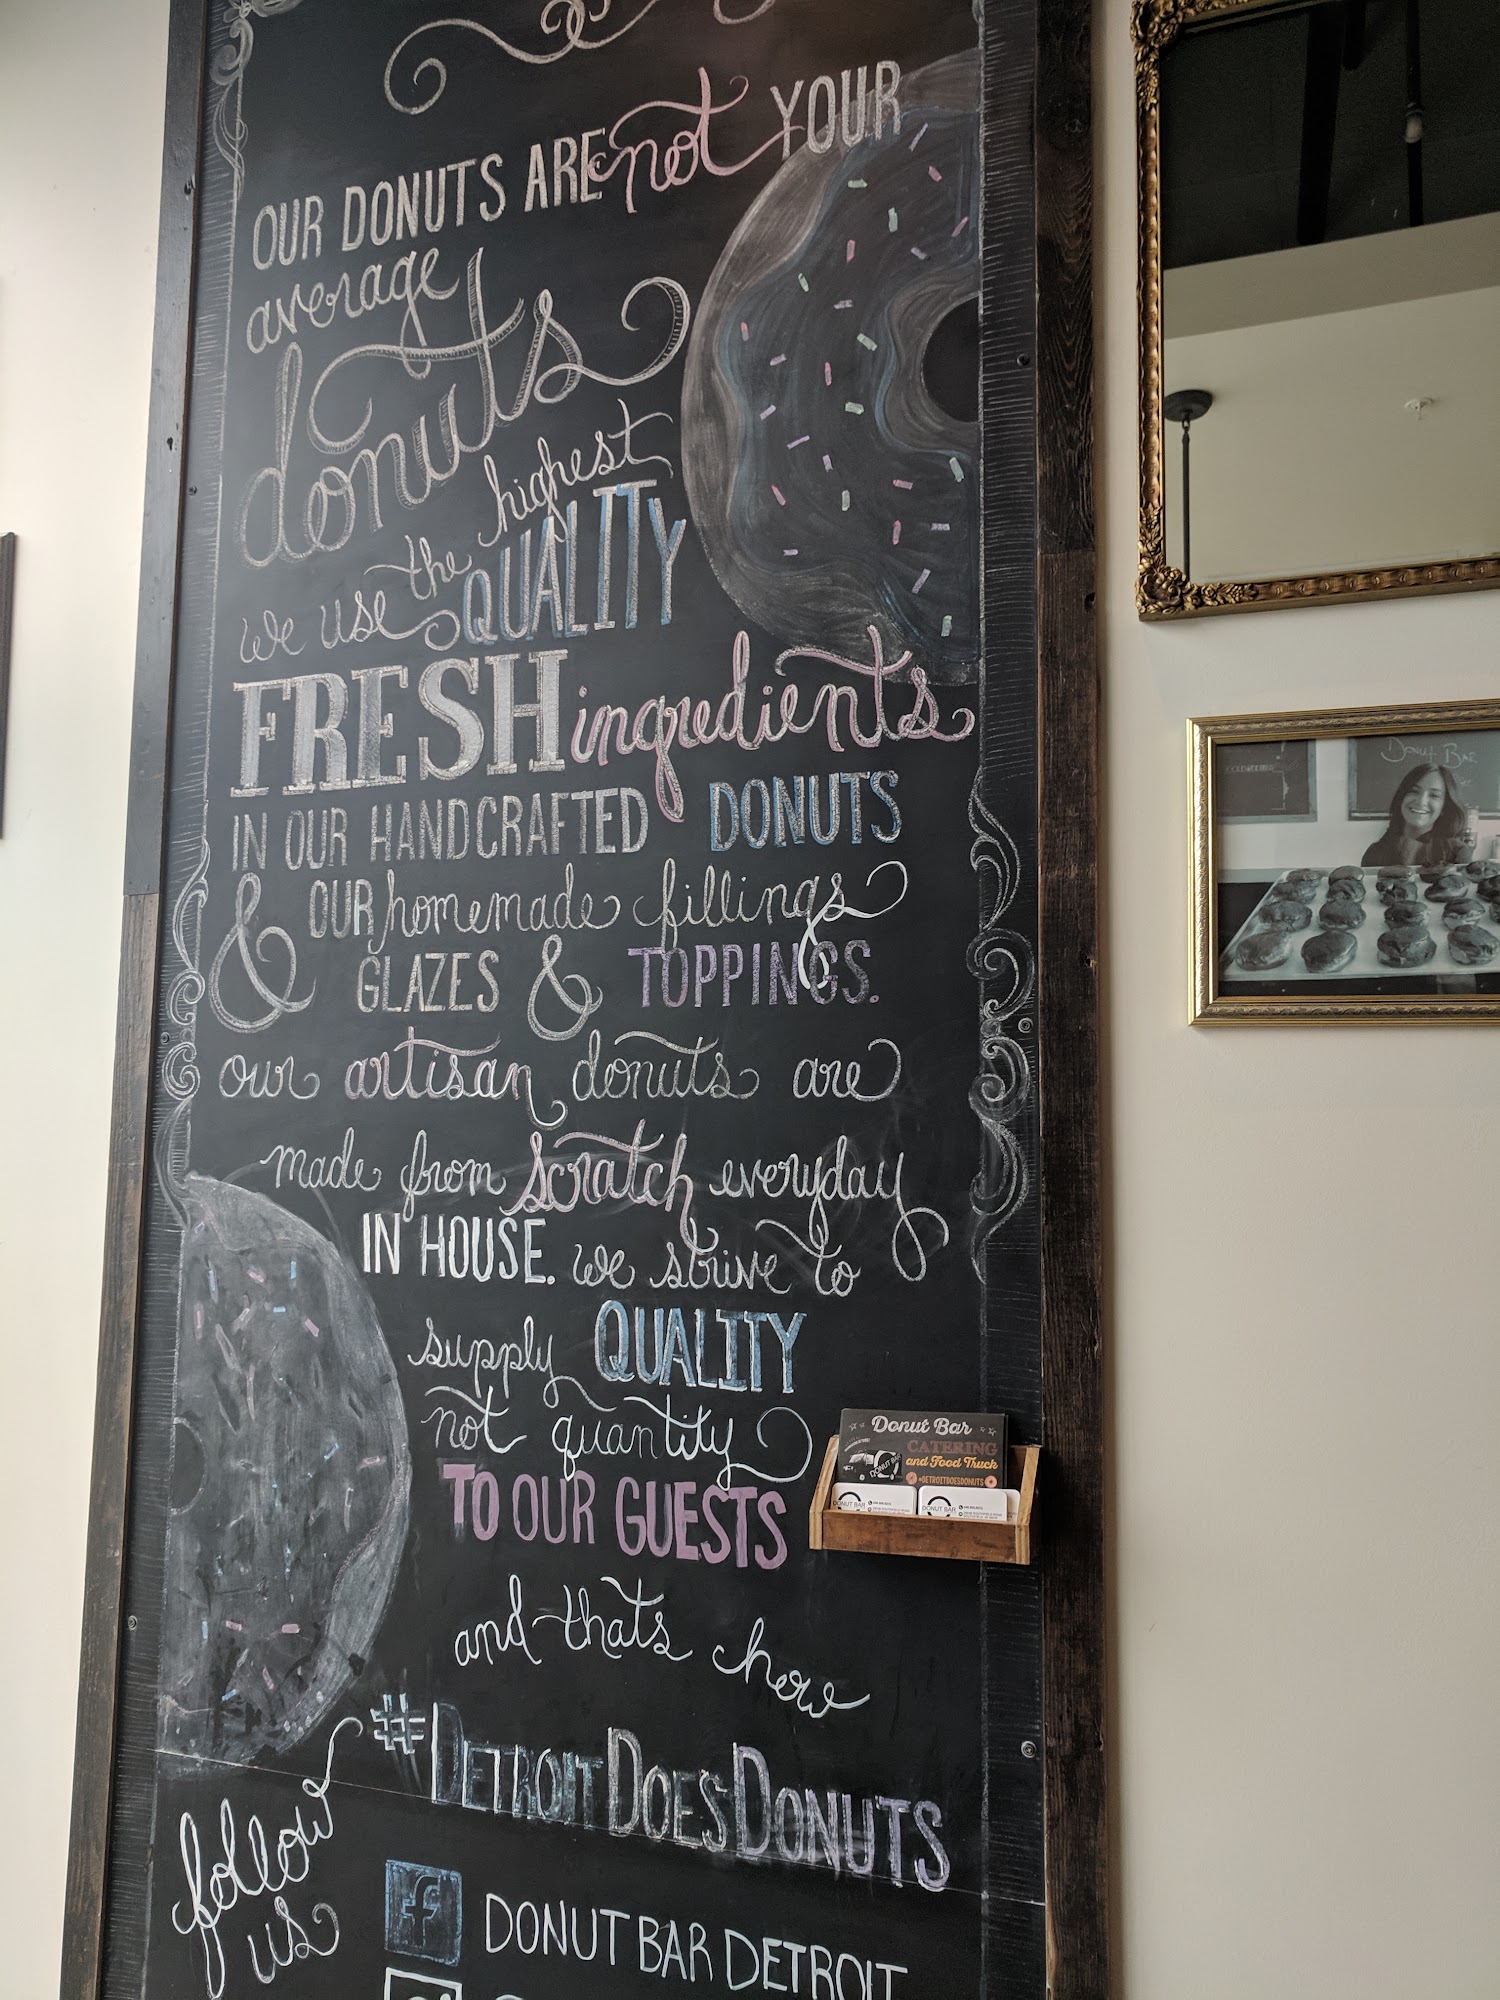 OUR DONUTS ARE not YOUR
average
donuts
we use the highest
QUALITY
FRESH ingredients
IN OUR HANDCRAFTED DONUTS
& OUR homemade fillings
GLAZES & TOPPINGS.
our artisan donuts are
made from scratch everyday
IN HOUSE. we strive to
supply QUALITY
not quantity
TO OUR GUESTS
and thats how
#DETROITDOESDONUTS
follow
us
f DONUT BAR DETROIT
Donut Bar
CATERING
and Food Truck
#DETROITDOESDONUTS
DONUT BAR
DONUT BAR
DONUT BAR
DONUT BAR